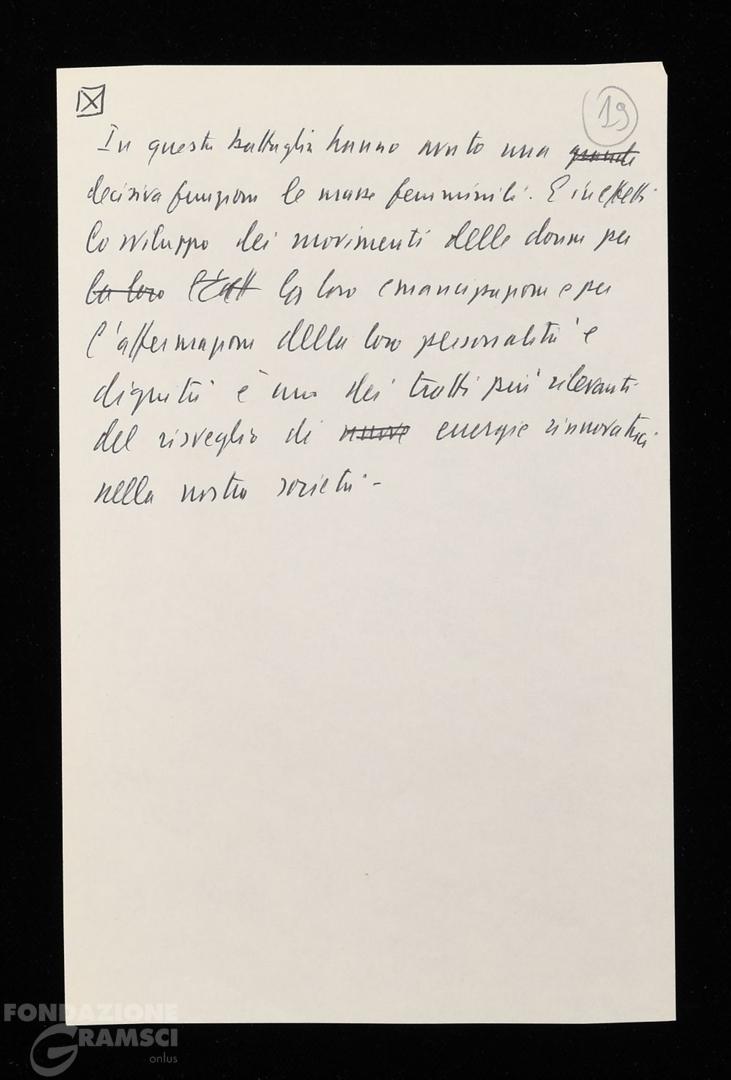 19
In questa battaglia hanno avuto una grande
decisiva funzione le masse femminili. E in effetti
lo sviluppo dei movimenti delle donne per
la loro la loro emancipazione e per
l'affermazione della loro personalità e
dignità è uno dei tratti più rilevanti
del risveglio di nuove energie rinnovatrici
nella nostra società -
FONDAZIONE
GRAMSCI
onlus